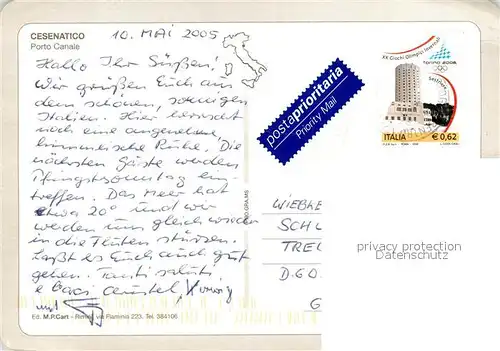 CESENATICO
Porto Canale
10. MAI 2005
Hallo Ihr Süßen!
Wir grüßen Euch aus
dem schönen, sonnigen
Italien. Hier herrscht
noch eine angenehme,
himmlische Ruhe. Die
nächsten Gäste werden
Pfingstsonntag ein-
treffen. Das Meer hat
etwa 20° und wir
werden uns gleich wieder
in die Fluten stürzen.
Laßt es Euch auch gut
gehen. Tanti saluti
e Baci Christel
und
Ed. M.P.Cart - Rimini via Flaminia 223. Tel. 384106
postaprioritaria
Priority Mail
XX Giochi Olimpici Invernali
torino 2006
Sestriere
ITALIA € 0,62
WIEBKE
SCHU
TREU
D.60
G
privacy protection
Datenschutz